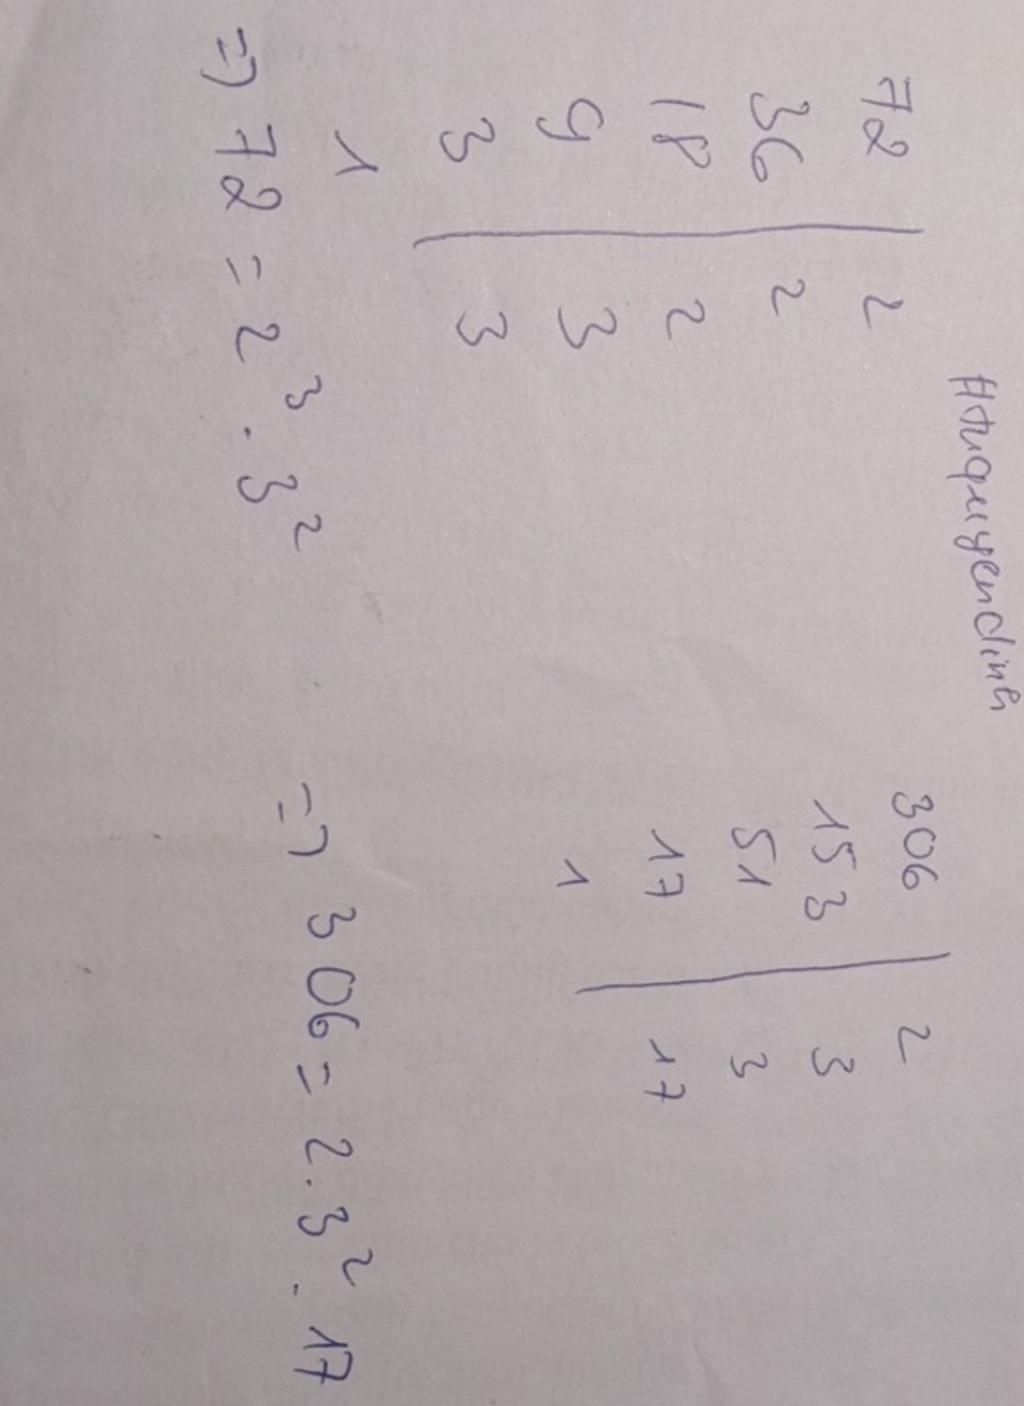 Htuquyendinh
72 | 2
36 | 2
18 | 2
9 | 3
3 | 3
1
=> 72 = 2³ . 3²
306 | 2
153 | 3
51 | 3
17 | 17
1
=> 306 = 2 . 3² . 17